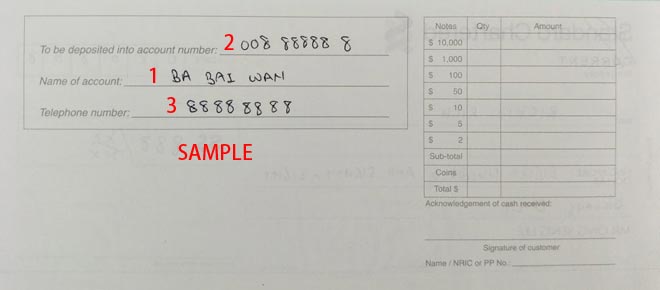 To be deposited into account number: 2 008 88888 8
Name of account: 1 BA BAI WAN
Telephone number: 3 88888888
SAMPLE
Notes Qty Amount
$ 10,000
$ 1,000
$ 100
$ 50
$ 10
$ 5
$ 2
Sub-total
Coins
Total $
Acknowledgement of cash received:
Signature of customer
Name / NRIC or PP No.: